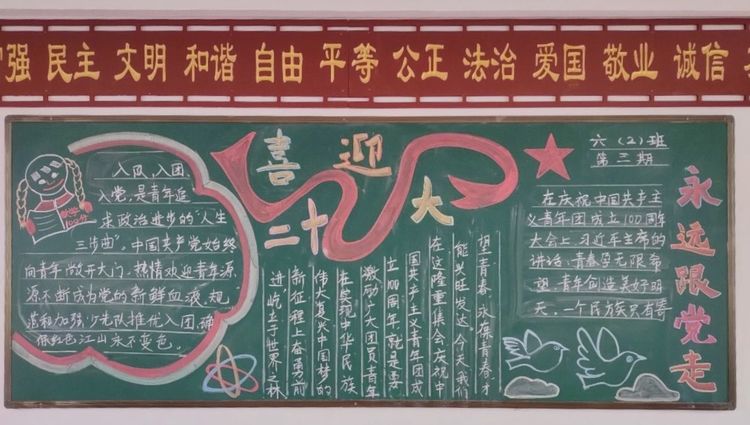 强 民主 文明 和谐 自由 平等 公正 法治 爱国 敬业 诚信
入队,入团,
入党,是青年追
求政治进步的"人生
三步曲",中国共产党始终
向青年敞开大门,热情欢迎青年源
源不断成为党的新鲜血液,规
范和加强少先队推优入团,确
保红色江山永不变色。
喜迎
二十大
六(2)班
第三期
在庆祝中国共产主
义青年团成立100周年
大会上习近平主席的
讲话:青春孕无限希
望,青年创造美好明
天,一个民族只有寄
望青春,永葆青春才
能兴旺发达,今天我们
在这隆重集会庆祝中
国共产主义青年团成
立100周年,就是要
激励广大团员青年
在实现中华民族
伟大复兴中国梦的
新征程上奋勇前
进,屹立于世界之林
永远跟党走